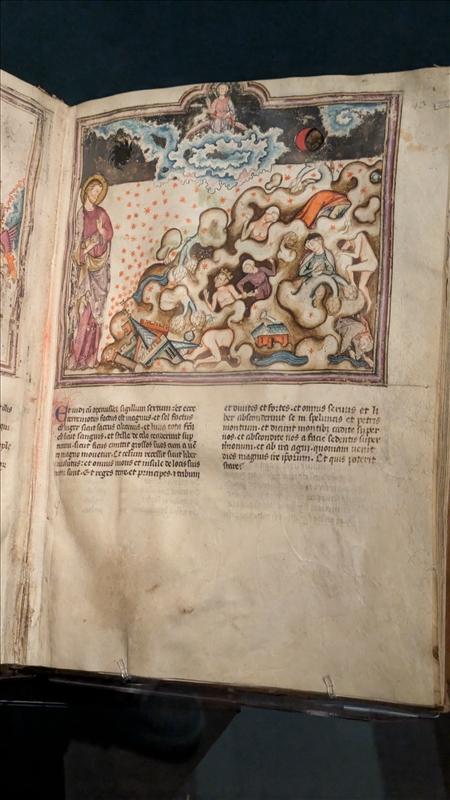 Et vidi cū aperuisset sigillum sextum: et ecce
terremotus factus est magnus: et sol factus
est niger sicut saccus cilicinus: et luna tota
est sicut sanguis: et stelle de celo ceciderunt sup
terram: sicut ficus emittit grossos suos cum a vē
to magno movetur. Et celum recessit sicut liber
involutus: et omnis mons et insule de locis suis
mote sunt. Et reges terre et principes et tribuni
et divites et fortes. et omnis servus et li
ber absconderunt se in speluncis et petris
montium. et dicunt montibꝰ cadite super
nos. et abscondite nos a facie sedentis super
thronum. et ab ira agni. quoniam venit
dies magnus ire ipsorum. Et quis poterit
stare